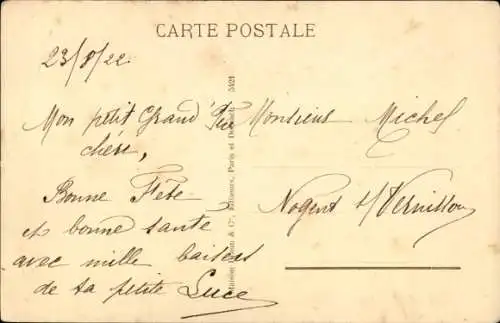 CARTE POSTALE
23/8/22
Mon petit Grand
chéri,
Bonne Fête
et bonne santé
avec mille baisers
de ta petite Luce
Monsieur Michel
Nogent s/ Vernisson
& Cie, Editeurs, Paris et
5421